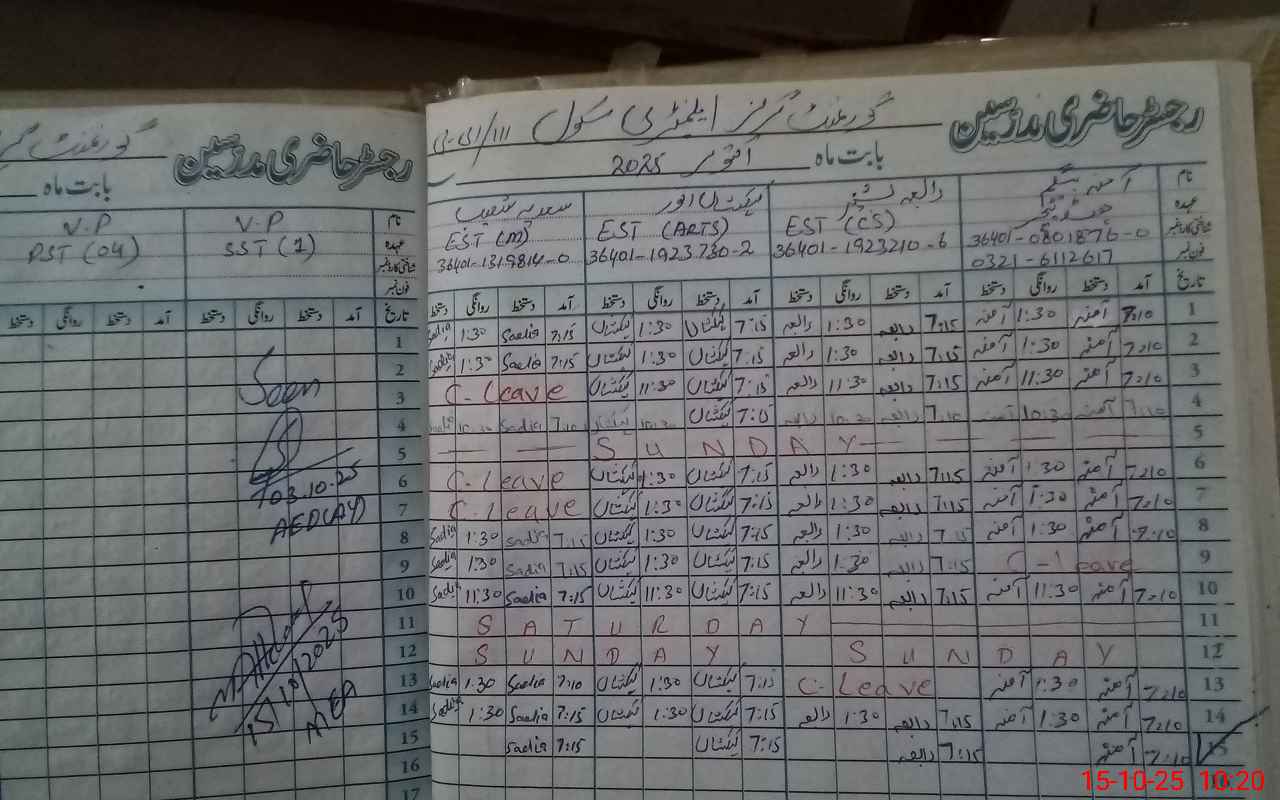 رجسٹر حاضری مدرسین
گورنمنٹ گرلز ایلیمنٹری سکول 111/ای-بی
بابت ماہ اکتوبر 2025
نام آمنہ بیگم رابعہ یکشاں انور سعدیہ شعیب
عہدہ EST (CS) EST (ARTS) EST (M)
شناختی کارڈ نمبر 36401-0801876-0 36401-1923210-6 36401-1923730-2 36401-1319814-0
فون نمبر 0321-6112617
تاریخ آمد دستخط روانگی دستخط آمد دستخط روانگی دستخط آمد دستخط روانگی دستخط آمد دستخط روانگی دستخط
1 7:10 آمنہ 1:30 آمنہ 7:15 رابعہ 1:30 رابعہ 7:15 یکشاں 1:30 یکشاں 7:15 Sadia 1:30 Sadia
2 7:10 آمنہ 1:30 آمنہ 7:15 رابعہ 1:30 رابعہ 7:15 یکشاں 1:30 یکشاں 7:15 Sadia 1:30 Sadia
3 7:10 آمنہ 11:30 آمنہ 7:15 رابعہ 11:30 رابعہ 7:15 یکشاں 11:30 یکشاں C-Leave
4 7:10 آمنہ 10:30 آمنہ 7:10 رابعہ 10:30 رابعہ 7:15 یکشاں 10:30 یکشاں 7:10 Sadia 10:30 Sadia
5 SUNDAY
6 7:10 آمنہ 1:30 آمنہ 7:15 رابعہ 1:30 رابعہ 7:15 یکشاں 1:30 یکشاں C-Leave
7 7:10 آمنہ 1:30 آمنہ 7:15 رابعہ 1:30 رابعہ 7:15 یکشاں 1:30 یکشاں C-Leave
8 7:10 آمنہ 1:30 آمنہ 7:15 رابعہ 1:30 رابعہ 7:15 یکشاں 1:30 یکشاں 7:15 Sadia 1:30 Sadia
9 C-Leave 7:15 رابعہ 1:30 رابعہ 7:15 یکشاں 1:30 یکشاں 7:15 Sadia 1:30 Sadia
10 7:10 آمنہ 11:30 آمنہ 7:15 رابعہ 11:30 رابعہ 7:15 یکشاں 11:30 یکشاں 7:15 Sadia 11:30 Sadia
11 SATURDAY
12 SUNDAY SUNDAY
13 7:10 آمنہ 1:30 آمنہ C-Leave 7:15 یکشاں 1:30 یکشاں 7:10 Sadia 1:30 Sadia
14 7:10 آمنہ 1:30 آمنہ 7:15 رابعہ 1:30 رابعہ 7:15 یکشاں 1:30 یکشاں 7:15 Sadia 1:30 Sadia
15 7:10 آمنہ 7:15 رابعہ 7:15 یکشاں 7:15 Sadia
16
رجسٹر حاضری مدرسین
گورنمنٹ
بابت ماہ
نام V.P V.P
عہدہ SST (1) PST (04)
شناختی کارڈ نمبر
فون نمبر
تاریخ آمد دستخط روانگی دستخط آمد دستخط روانگی دستخط
1
2
3 Seen
4
5
6 03.10.25
7 AEO(AY)
8
9
10
11
12
13
14 15/10/2025
15 AEO
16
17
15-10-25 10:20